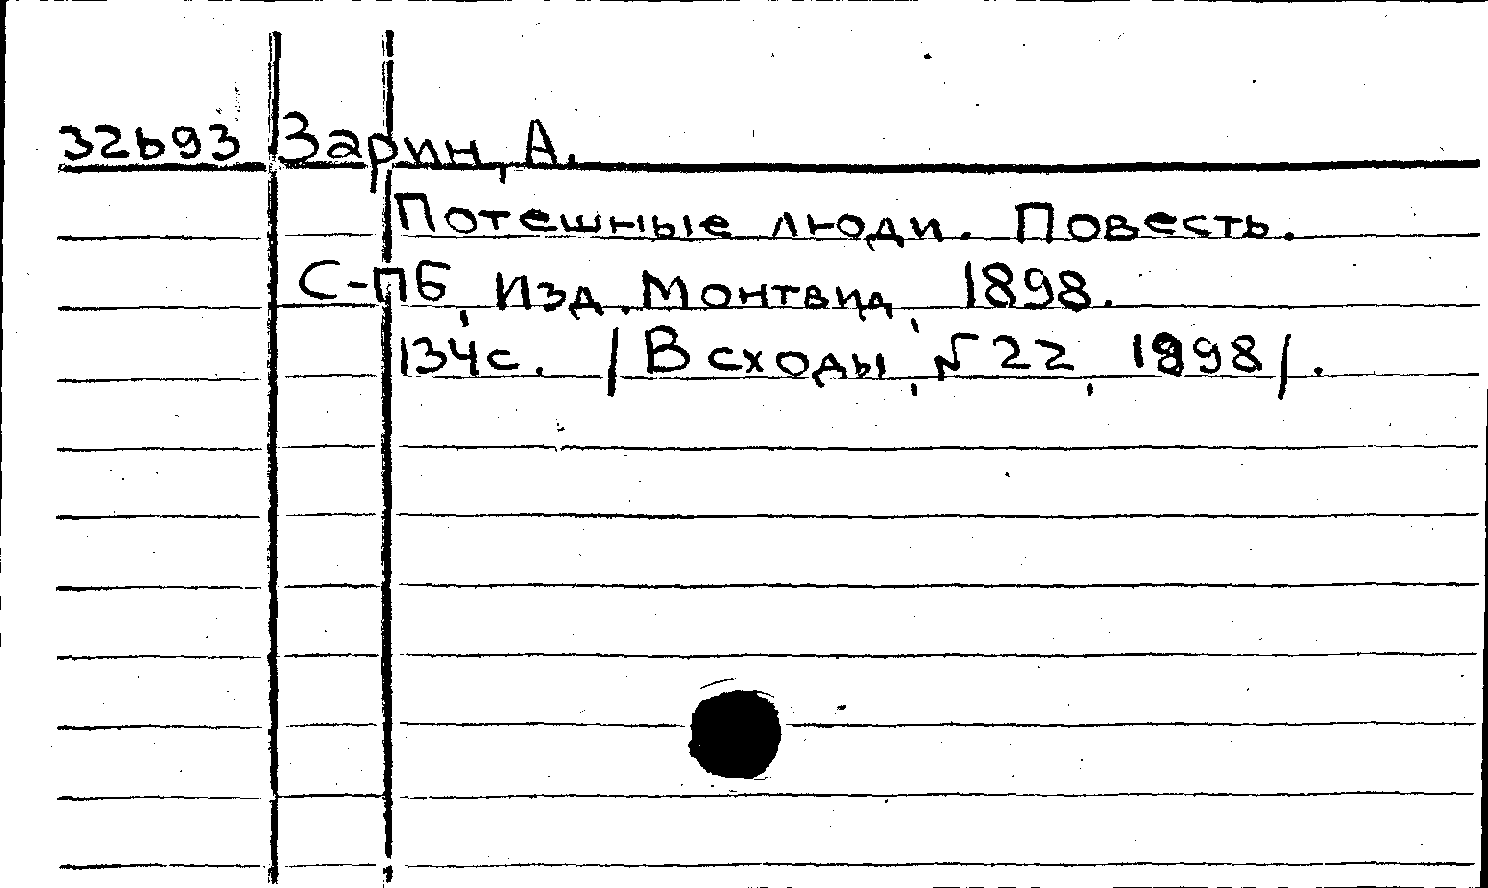 32693 Зарин, А.
Потешные люди. Повесть.
С-ПБ, Изд. Монтвид, 1898.
134с. /Всходы, № 22, 1898/.